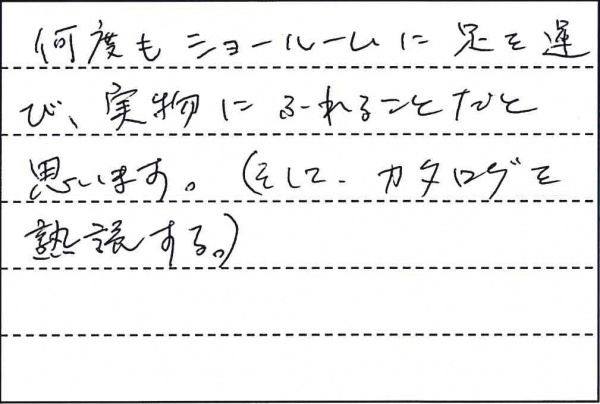 何度もショールームに足を運
び、実物にふれることだと
思います。（そして、カタログを
熟読する。）